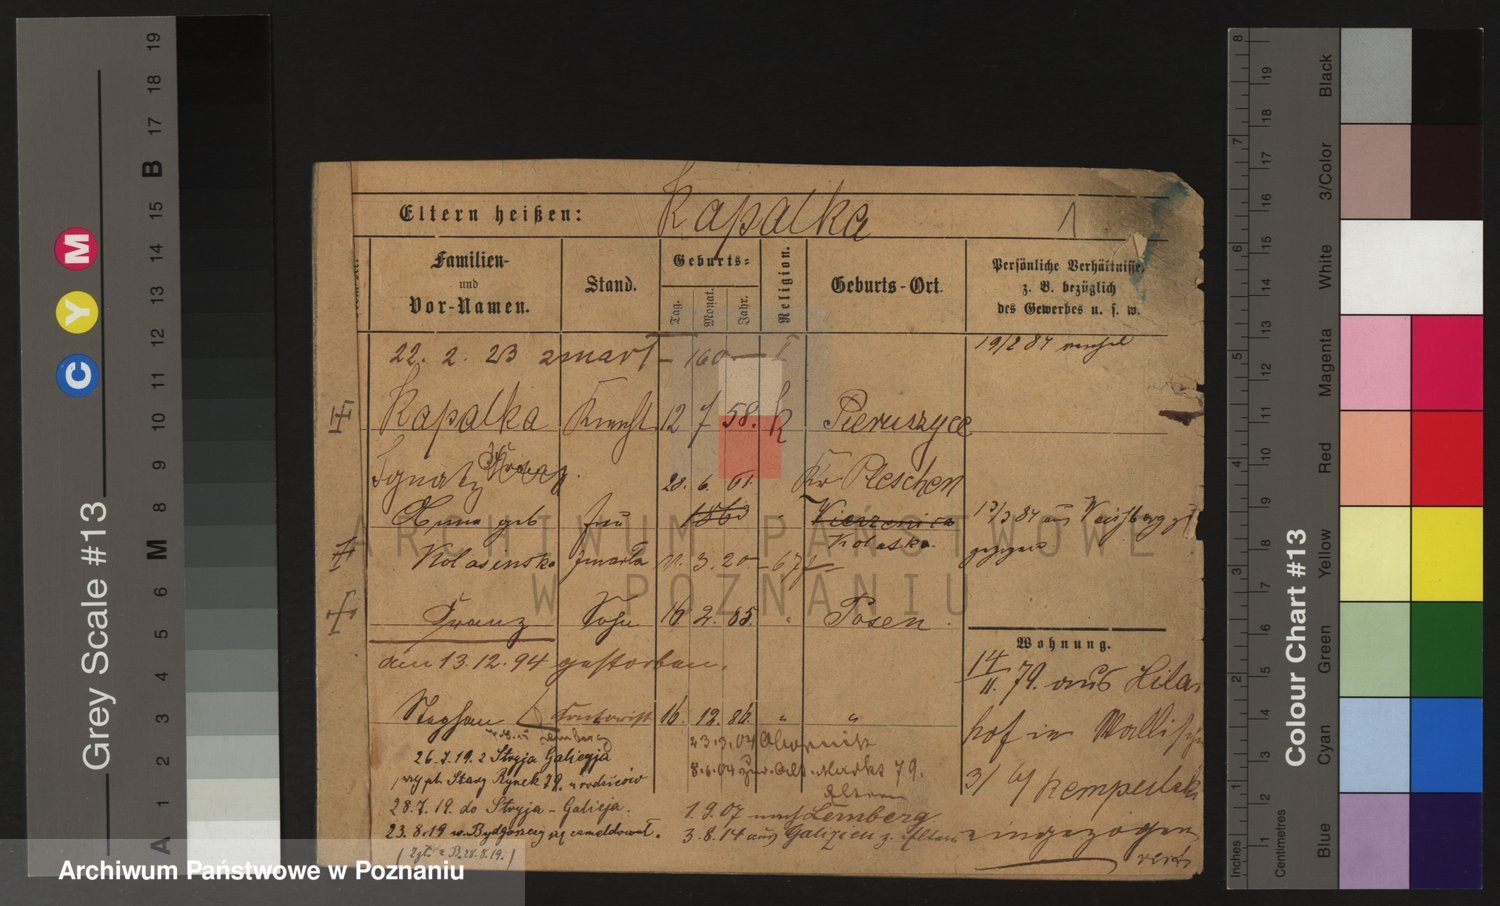 Grey Scale #13
C Y M
A 1 2 3 4 5 6 M 8 9 10 11 12 13 14 15 B 17 18 19
Eltern heißen: Kapalka 1
Familien-
und
Vor-Namen.
Stand.
Geburts=
Tag.
Monat.
Jahr.
Religion.
Geburts-Ort.
Persönliche Verhältnisse,
z. B. bezüglich
des Gewerbes u. s. w.
22. 2. 23 zmarł - 160
19/2 87
Kapalka Knecht 12 7 58. k Pieruszyce
Ignatz
28. 6. 61. Kr Pleschen
geb frau 1860 Wierzenica 13/3 87 aus
Kolasinska zmarła 11. 3. 20 - 671 Kobaska
Franz Sohn 16 2. 85. " Posen.
den 13.12.94 gestorben.
Wohnung.
14/11. 79. aus Hila
hof in Wallisch
3/ Kempe
eingezogen
Stephan 16. 12. 86. " "
26.7.19. z Stryja Galicyja
przy pl. Stary Rynek 79. u rodziców
28.7.19. do Stryja - Galicja.
23.8.19 w Bydgoszczy się zameldował.
23.3.04
8.6.04 zur. Alt. Markt 79.
Eltern
1.9.07 nach Lemberg
3.8.14 aus Galizien z. Eltern
ARCHIWUM PAŃSTWOWE
W POZNANIU
Archiwum Państwowe w Poznaniu
Colour Chart #13
Inches 1 2 3 4 5 6 7 8
Centimetres 1 2 3 4 5 6 7 8 9 10 11 12 13 14 15 16 17 18 19
Blue
Cyan
Green
Yellow
Red
Magenta
White
3/Color
Black